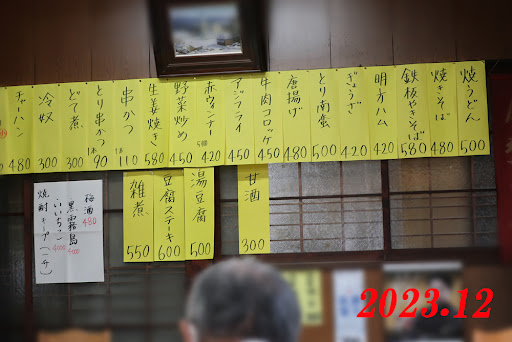 焼うどん 500
焼きそば 480
鉄板やきそば 580
明方ハム 420
ぎょうざ 420
とり南蛮 500
唐揚げ 480
牛肉コロッケ 450
アジフライ 450
赤ウィンナー 5個 420
野菜炒め 450
生姜焼き 580
串かつ 1本 110
とり串かつ 1本 90
どて煮 300
冷奴 300
チャーハン 480
甘酒 300
湯豆腐 500
豆腐ステーキ 600
雑煮 550
梅酒 480
黒霧島
いいちこ
焼酎キープ(一升)
2023.12